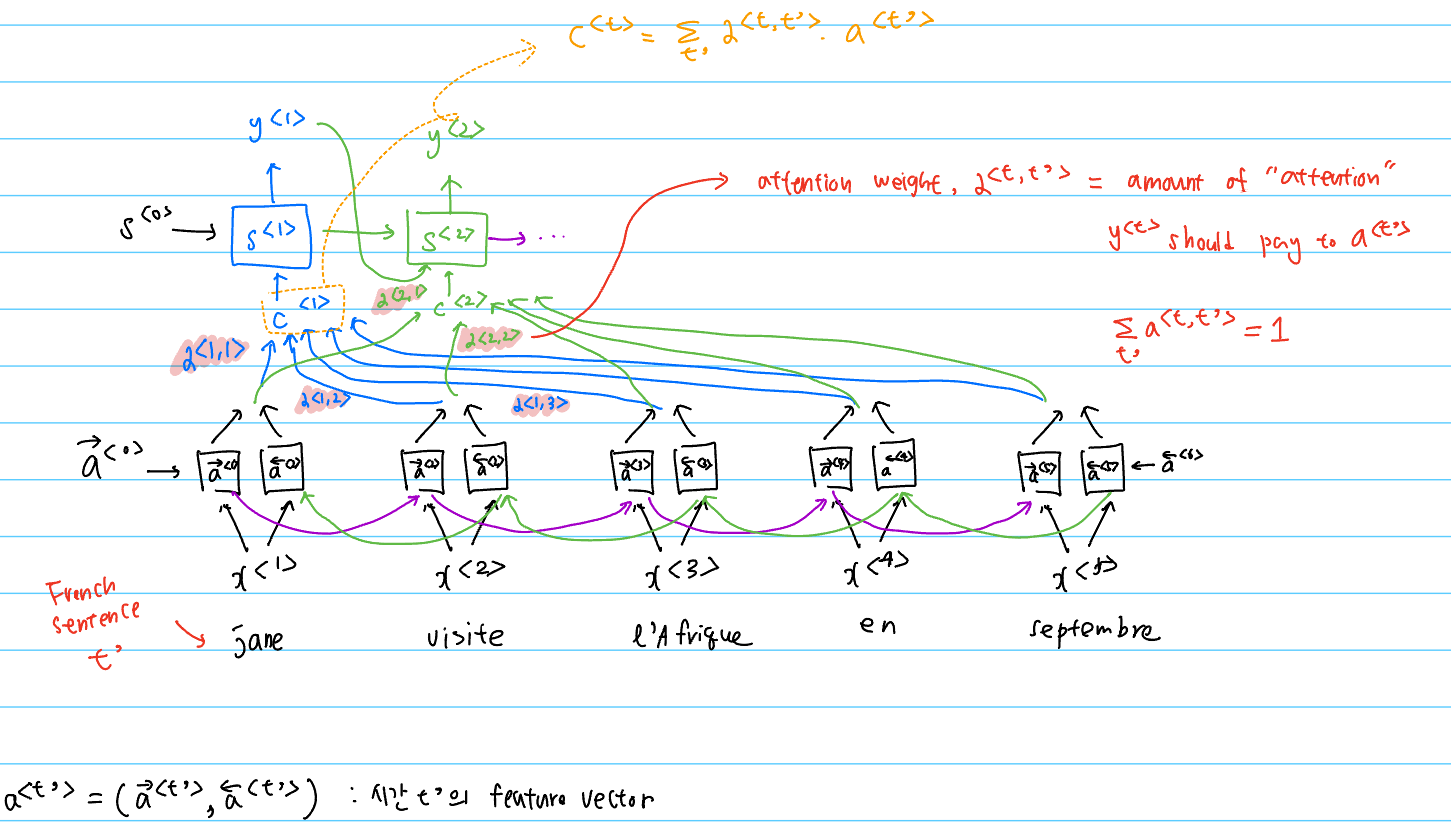 c<t> = Σt' α<t,t'> · a<t'>
y<1>
y<2>
attention weight, α<t,t'> = amount of "attention"
y<t> should pay to a<t'>
s<0>
s<1>
s<2>
...
c<1>
α<2,1>
c<2>
Σt' a<t,t'> = 1
α<1,1>
α<2,2>
α<1,2>
α<1,3>
a⃗<0>
a⃗<1> a⃖<1>
a⃗<2> a⃖<2>
a⃗<3> a⃖<3>
a⃗<4> a⃖<4>
a⃗<5> a⃖<5>
a⃖<6>
x<1> x<2> x<3> x<4> x<5>
French
sentence
t'
jane visite l'Afrique en septembre
a<t'> = (a⃗<t'>, a⃖<t'>) : 시간 t'의 feature vector